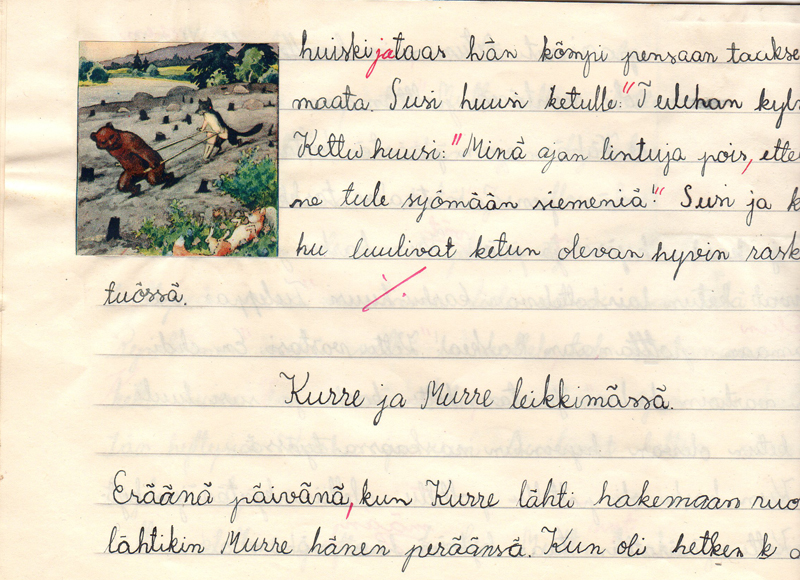 huiski ja taas hän kömpi pensaan taakse
maata. Susi huusi ketulle: "Tulehan kylv
Kettu huusi: "Minä ajan lintuja pois, ette
ne tule syömään siemeniä!" Susi ja k
hu luulivat ketun olevan hyvin rask
tuössä.
Kurre ja Murre leikkimässä.
Eräänä päivänä, kun Kurre lähti hakemaan ruo
lähtikin Murre hänen peräänsä. Kun oli hetken k